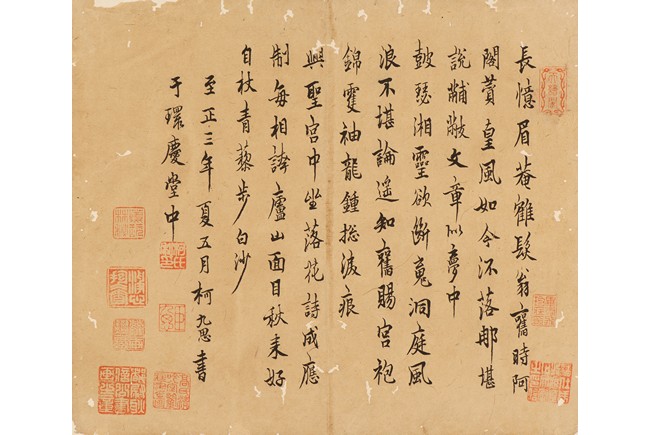 長憶眉菴鶴髮翁舊時阿
閣贊皇風如今流落那堪
說黼黻文章似夢中
鼓瑟湘靈欲斷魂洞庭風
浪不堪論遥知舊賜宮袍
錦雙袖龍鍾揔淚痕
興聖宮中坐落花詩成應
制每相誇廬山面目秋来好
自杖青藜步白沙
至正三年夏五月柯九思書
于環慶堂中